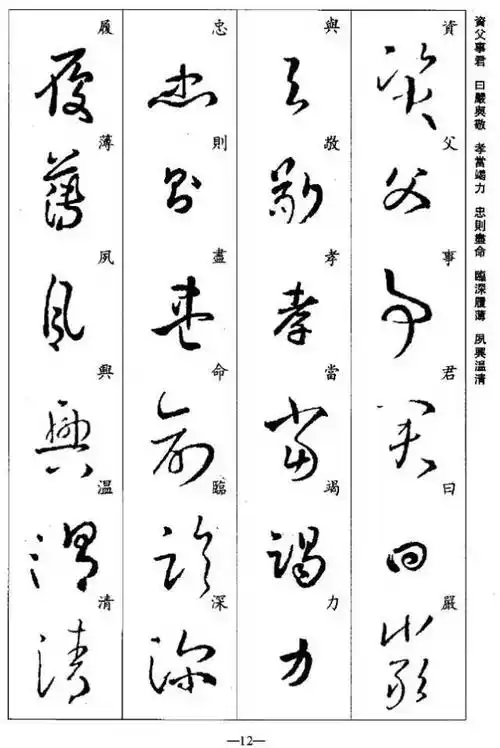 資父事君 曰嚴與敬 孝當竭力 忠則盡命 臨深履薄 夙興溫清
資父事君曰嚴
與敬孝當竭力
忠則盡命臨深
履薄夙興溫清
—12—